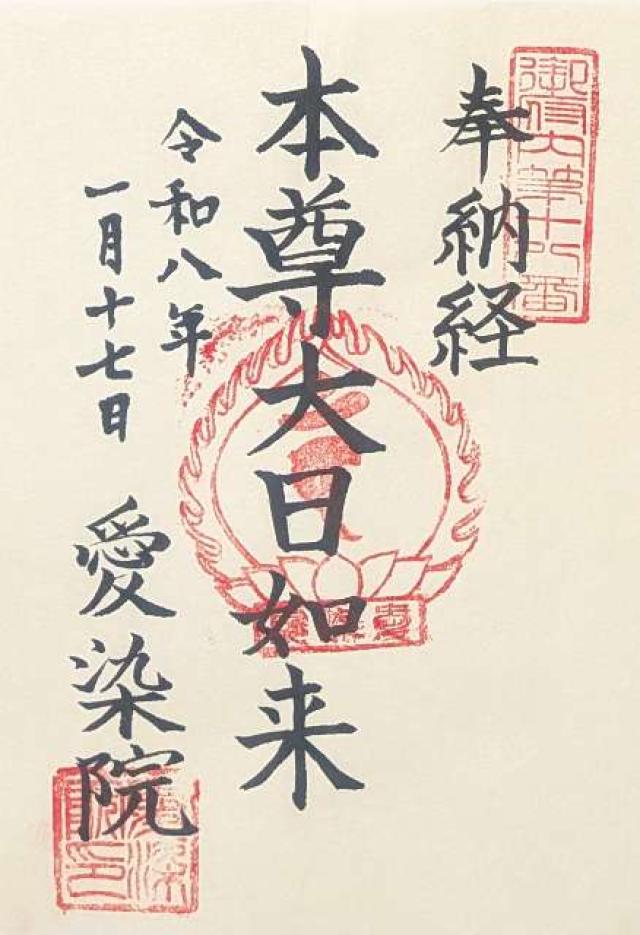 御府内第十八番
奉納経
本尊大日如来
令和八年
一月十七日
愛染院